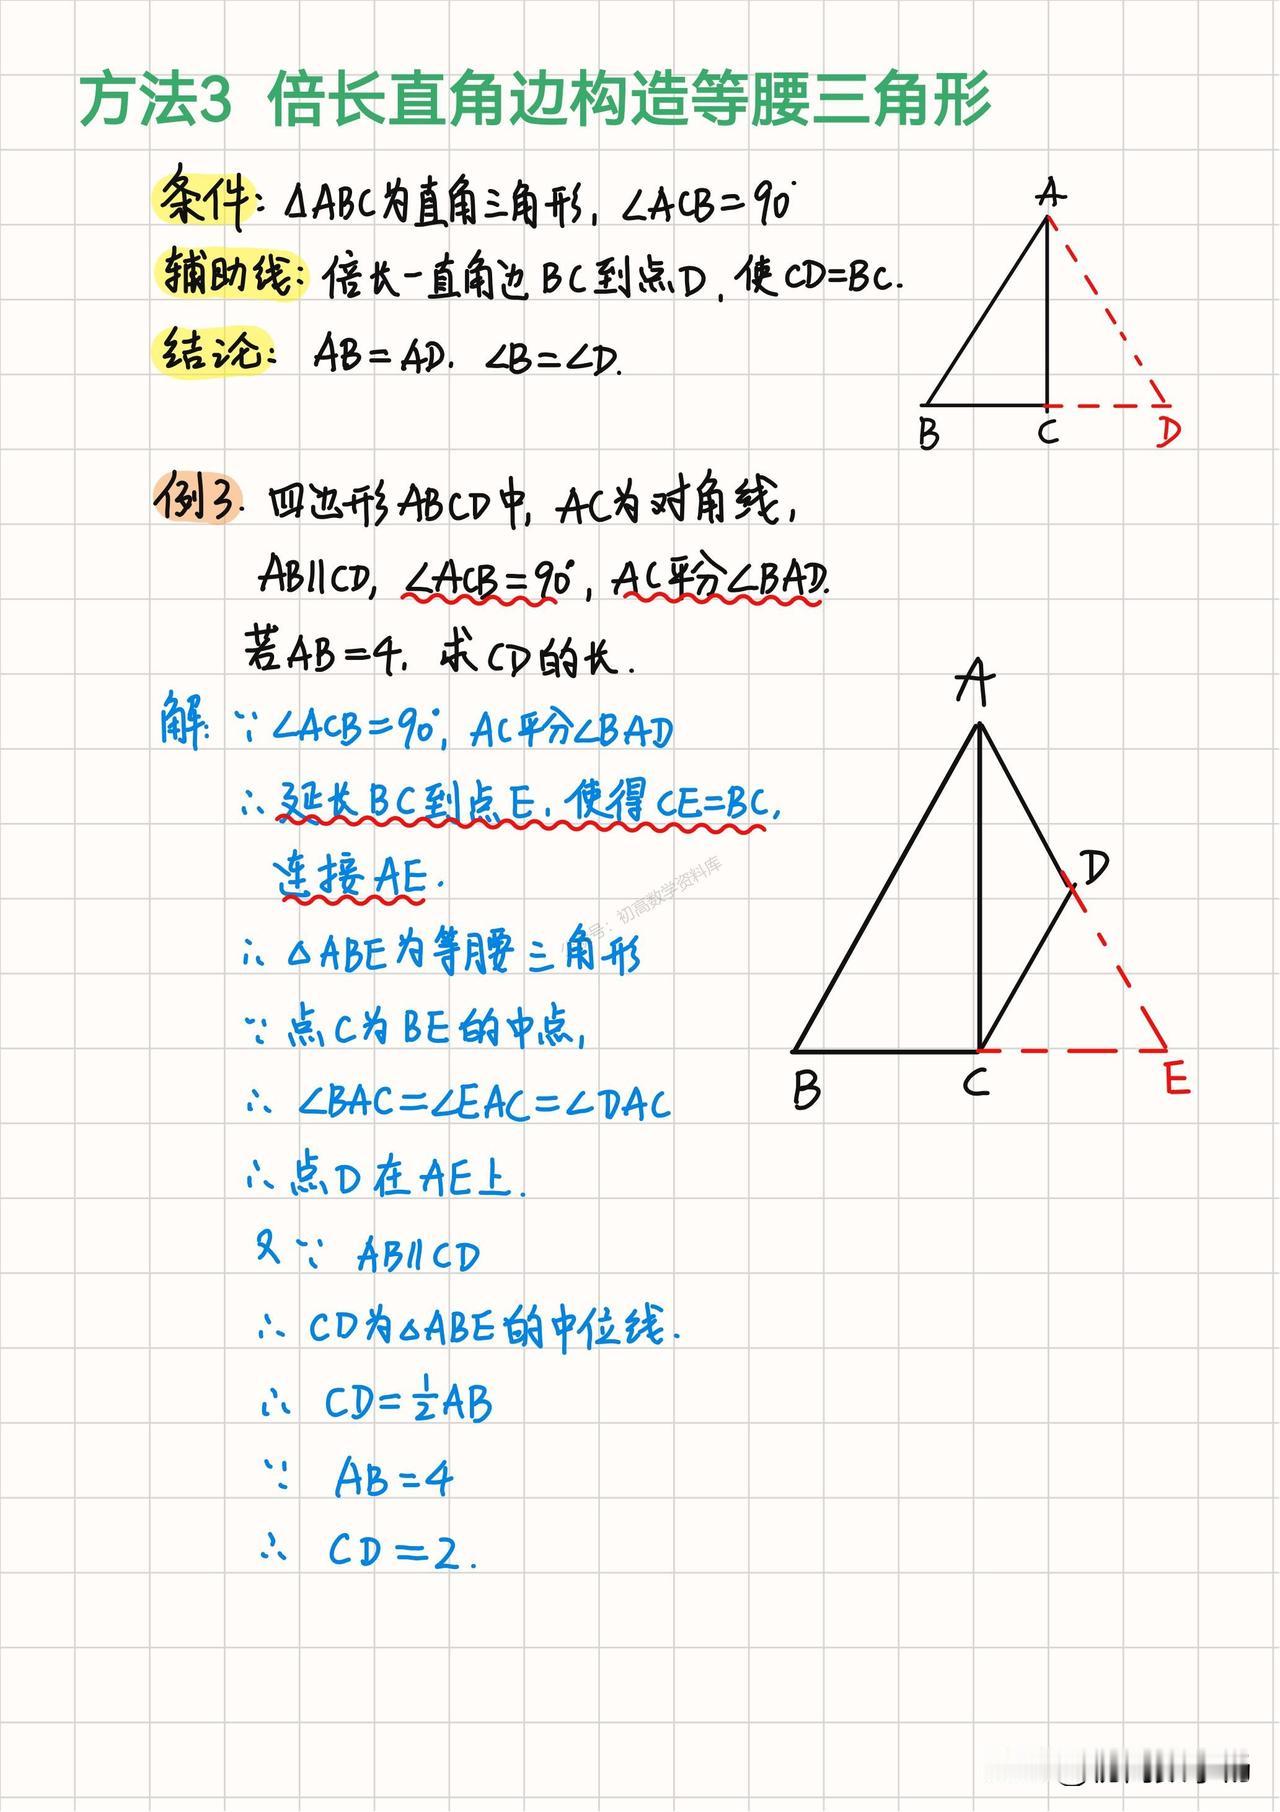 方法3 倍长直角边构造等腰三角形
条件: △ABC为直角三角形, ∠ACB=90°
辅助线: 倍长一直角边BC到点D, 使CD=BC.
结论: AB=AD. ∠B=∠D.
A
B
C
D
例3. 四边形ABCD中, AC为对角线,
AB∥CD, ∠ACB=90°, AC平分∠BAD.
若AB=4, 求CD的长.
解: ∵∠ACB=90°, AC平分∠BAD
∴延长BC到点E, 使得CE=BC,
连接AE.
∴△ABE为等腰三角形
∵点C为BE的中点,
∴∠BAC=∠EAC=∠DAC
∴点D在AE上.
又∵ AB∥CD
∴ CD为△ABE的中位线.
∴ CD=½AB
∵ AB=4
∴ CD=2.
A
D
B
C
E
号: 初高数学资料库